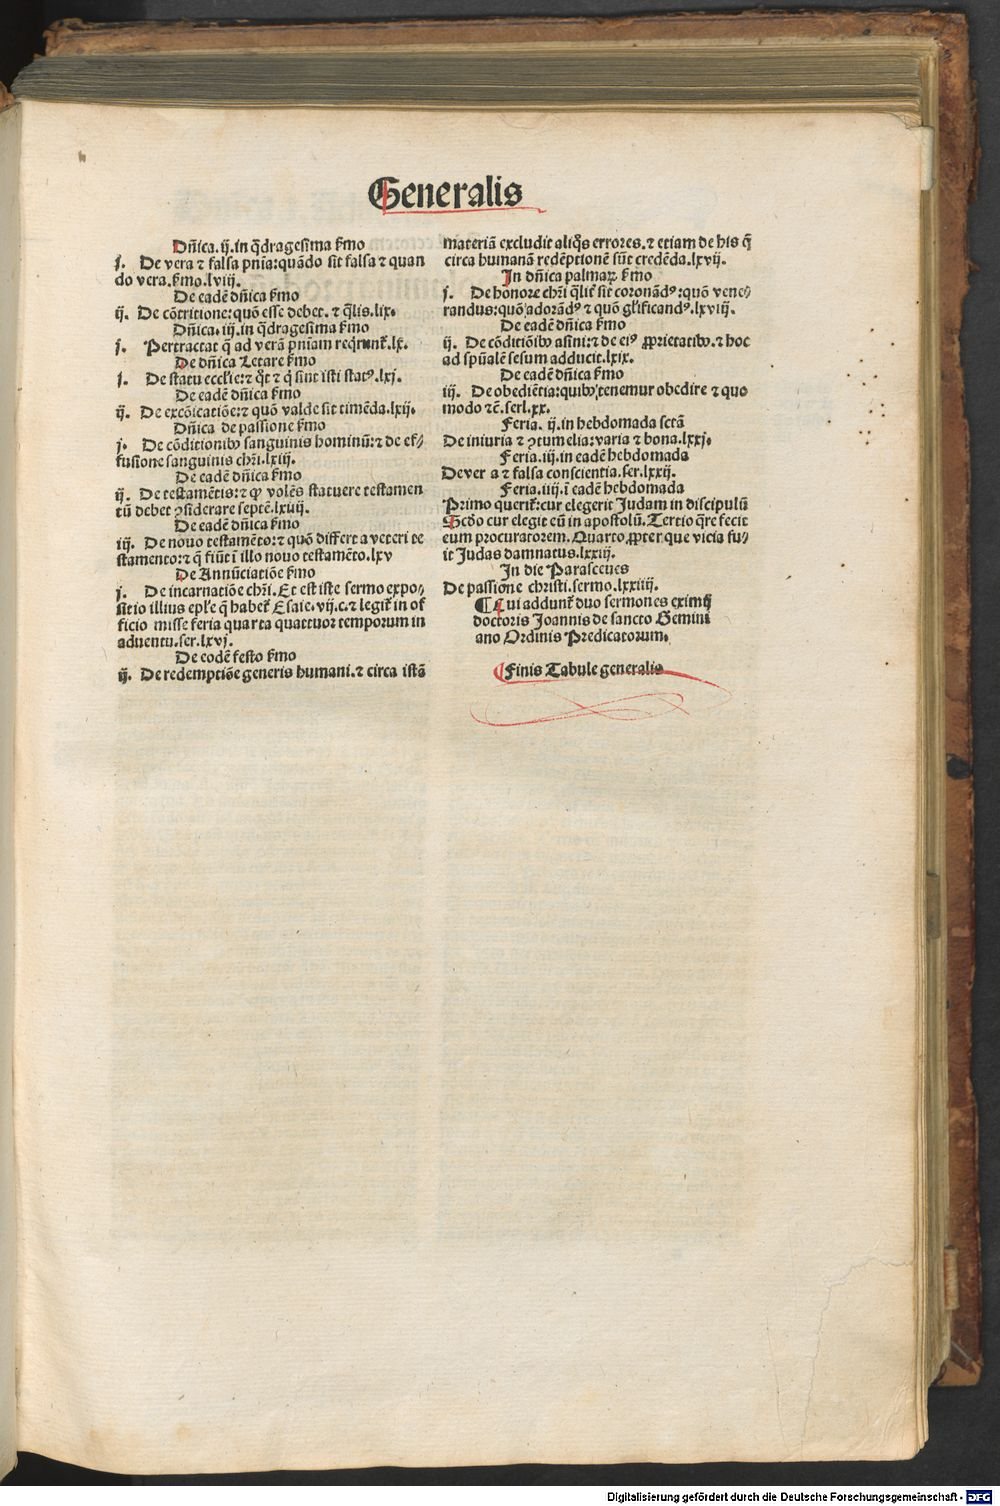 Generalis
Dñica. ij. in q̄dragesima ẜmo
j. De vera ⁊ falsa pnīa: quādo sit falsa ⁊ quan
do vera. ẜmo. lviij.
De eadē dñica ẜmo
ij. De cōtritione: quō esse debet. ⁊ q̄lis. lix.
Dñica. iij. in q̄dragesima ẜmo
j. Pertractat q̄ ad verā pnīam reqrunt᷑. lx.
De dñica Letare ẜmo
j. De statu eccl'ie: ⁊ q̊t ⁊ q̄ sint isti statꝰ. lxj.
De eadē dñica ẜmo
ij. De excōicatiōe: ⁊ quō valde sit timēda. lxij.
Dñica de passione ẜmo
j. De cōditionibꝰ sanguinis hominū: ⁊ de ef⸗
fusione sanguinis chri. lxiij.
De eadē dñica ẜmo
ij. De testamētis: ⁊ ꝙ volēs statuere testamen
tū debet ꝯsiderare septē. lxiiij.
De eadē dñica ẜmo
iij. De nouo testamēto: ⁊ quō differt a veteri te
stamento: ⁊ q̄ fiūt ī illo nouo testamēto. lxv
De Annūciatiōe ẜmo
j. De incarnatiōe chri. Et est iste sermo expo⸗
sitio illius epl'e q̄ habet᷑ Esaie. vij. c. ⁊ legit᷑ in of
ficio misse feria quarta quattuor temporum in
aduentu. ser. lxvj.
De eodē festo ẜmo
ij. De redemptiōe generis humani. ⁊ circa istā
materiā excludit aliq̄s errores. ⁊ etiam de his q̄
circa humanā redēptionē sūt credēda. lxvij.
In dñica palmaꝝ ẜmo
j. De honore chri q̄lit᷑ sit coronādꝰ: quō vene⸗
randus: quō adorādꝰ ⁊ quō gl'ificandꝰ. lxviij.
De eadē dñica ẜmo
ij. De cōditiōibꝰ asini: ⁊ de eiꝰ ꝓprietatibꝰ. ⁊ hoc
ad spūalē sesum adducit. lxix.
De eadē dñica ẜmo
iij. De obediētia: quibꝰ tenemur obedire ⁊ quo
modo ⁊c̄. serl. xx.
Feria. ij. in hebdomada sctā
De iniuria ⁊ ꝯtumelia: varia ⁊ bona. lxxj.
Feria. iij. in eadē hebdomada
De ver a ⁊ falsa conscientia. ser. lxxij.
Feria. iiij. ī eadē hebdomada
Primo querit᷑: cur elegerit Judam in discipulū
Scd̄o cur elegit eū in apostolū. Tertio q̄re fecit
eum procuratorem. Quarto, ꝓpter que vicia fu⸗
it Judas damnatus. lxxiij.
In die Parasceues
De passione christi. sermo. lxxiiij.
¶ Qui addunt᷑ duo sermones eximij
doctoris Joannis de sancto Gemini
ano Ordinis Predicatorum.
¶ Finis Tabule generalis
Digitalisierung gefördert durch die Deutsche Forschungsgemeinschaft - DFG